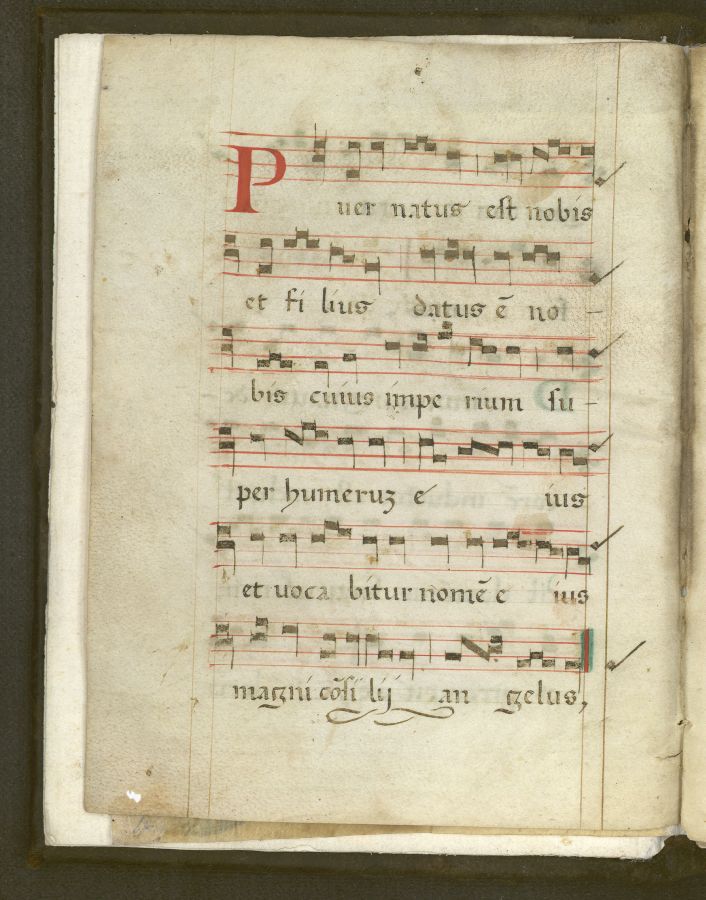 Puer natus est nobis
et fi lius datus ē no
bis cuius impe rium su-
per humeruʒ e ius
et uoca bitur nomē e ius
magni cōsi lij an gelus,